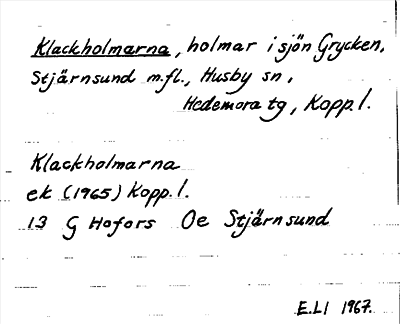 Klackholmarna, holmar i sjön Grycken,
Stjärnsund m.fl., Husby sn,
Hedemora tg, Kopp.l.
Klackholmarna
ek (1965) Kopp.l.
13 G Hofors Oe Stjärnsund
E.Ll 1967.